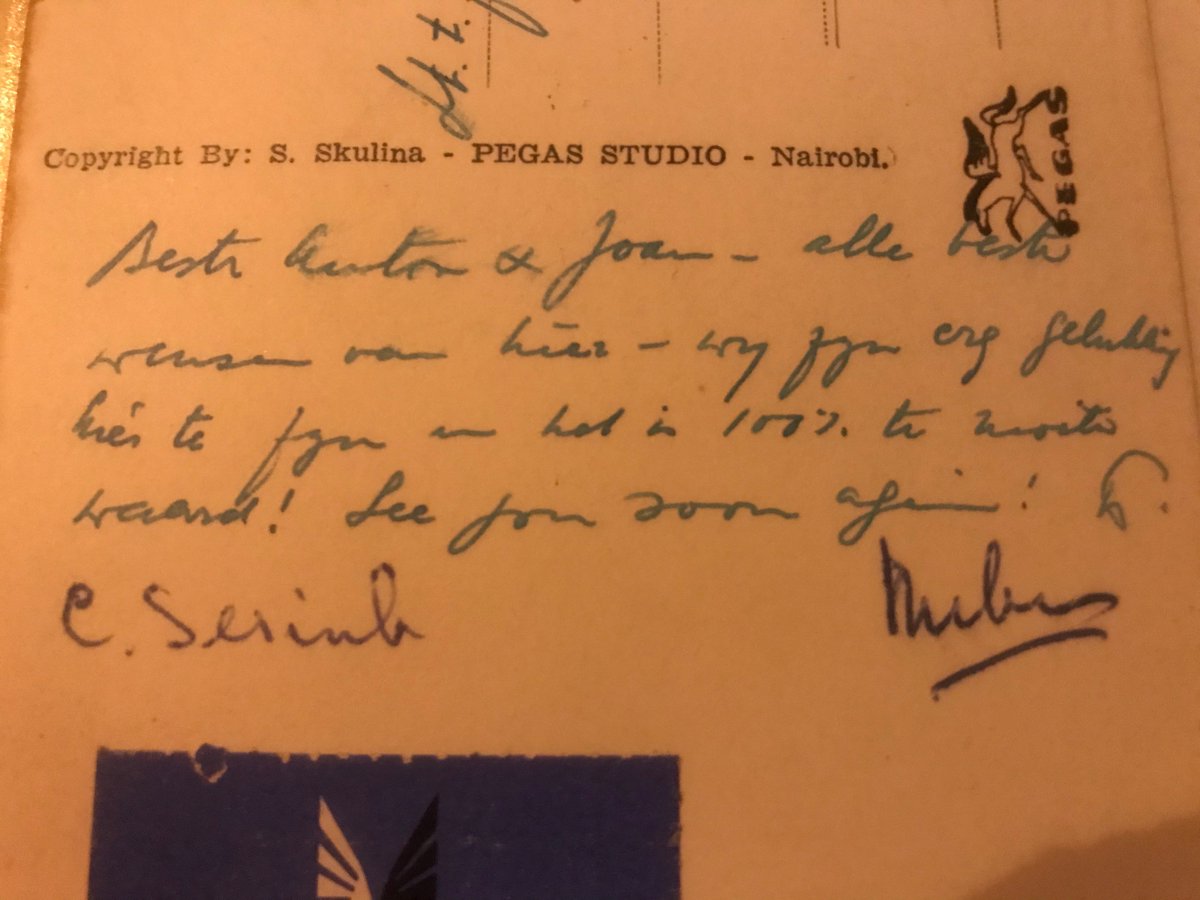 Copyright By: S. Skulina - PEGAS STUDIO - Nairobi.
PEGAS
Beste Anton & Joan - alle beste
wensen van hier - wy zyn erg gelukkig
hier te zyn en het is 100% de moeite
waard! See you soon again!
C. Serink